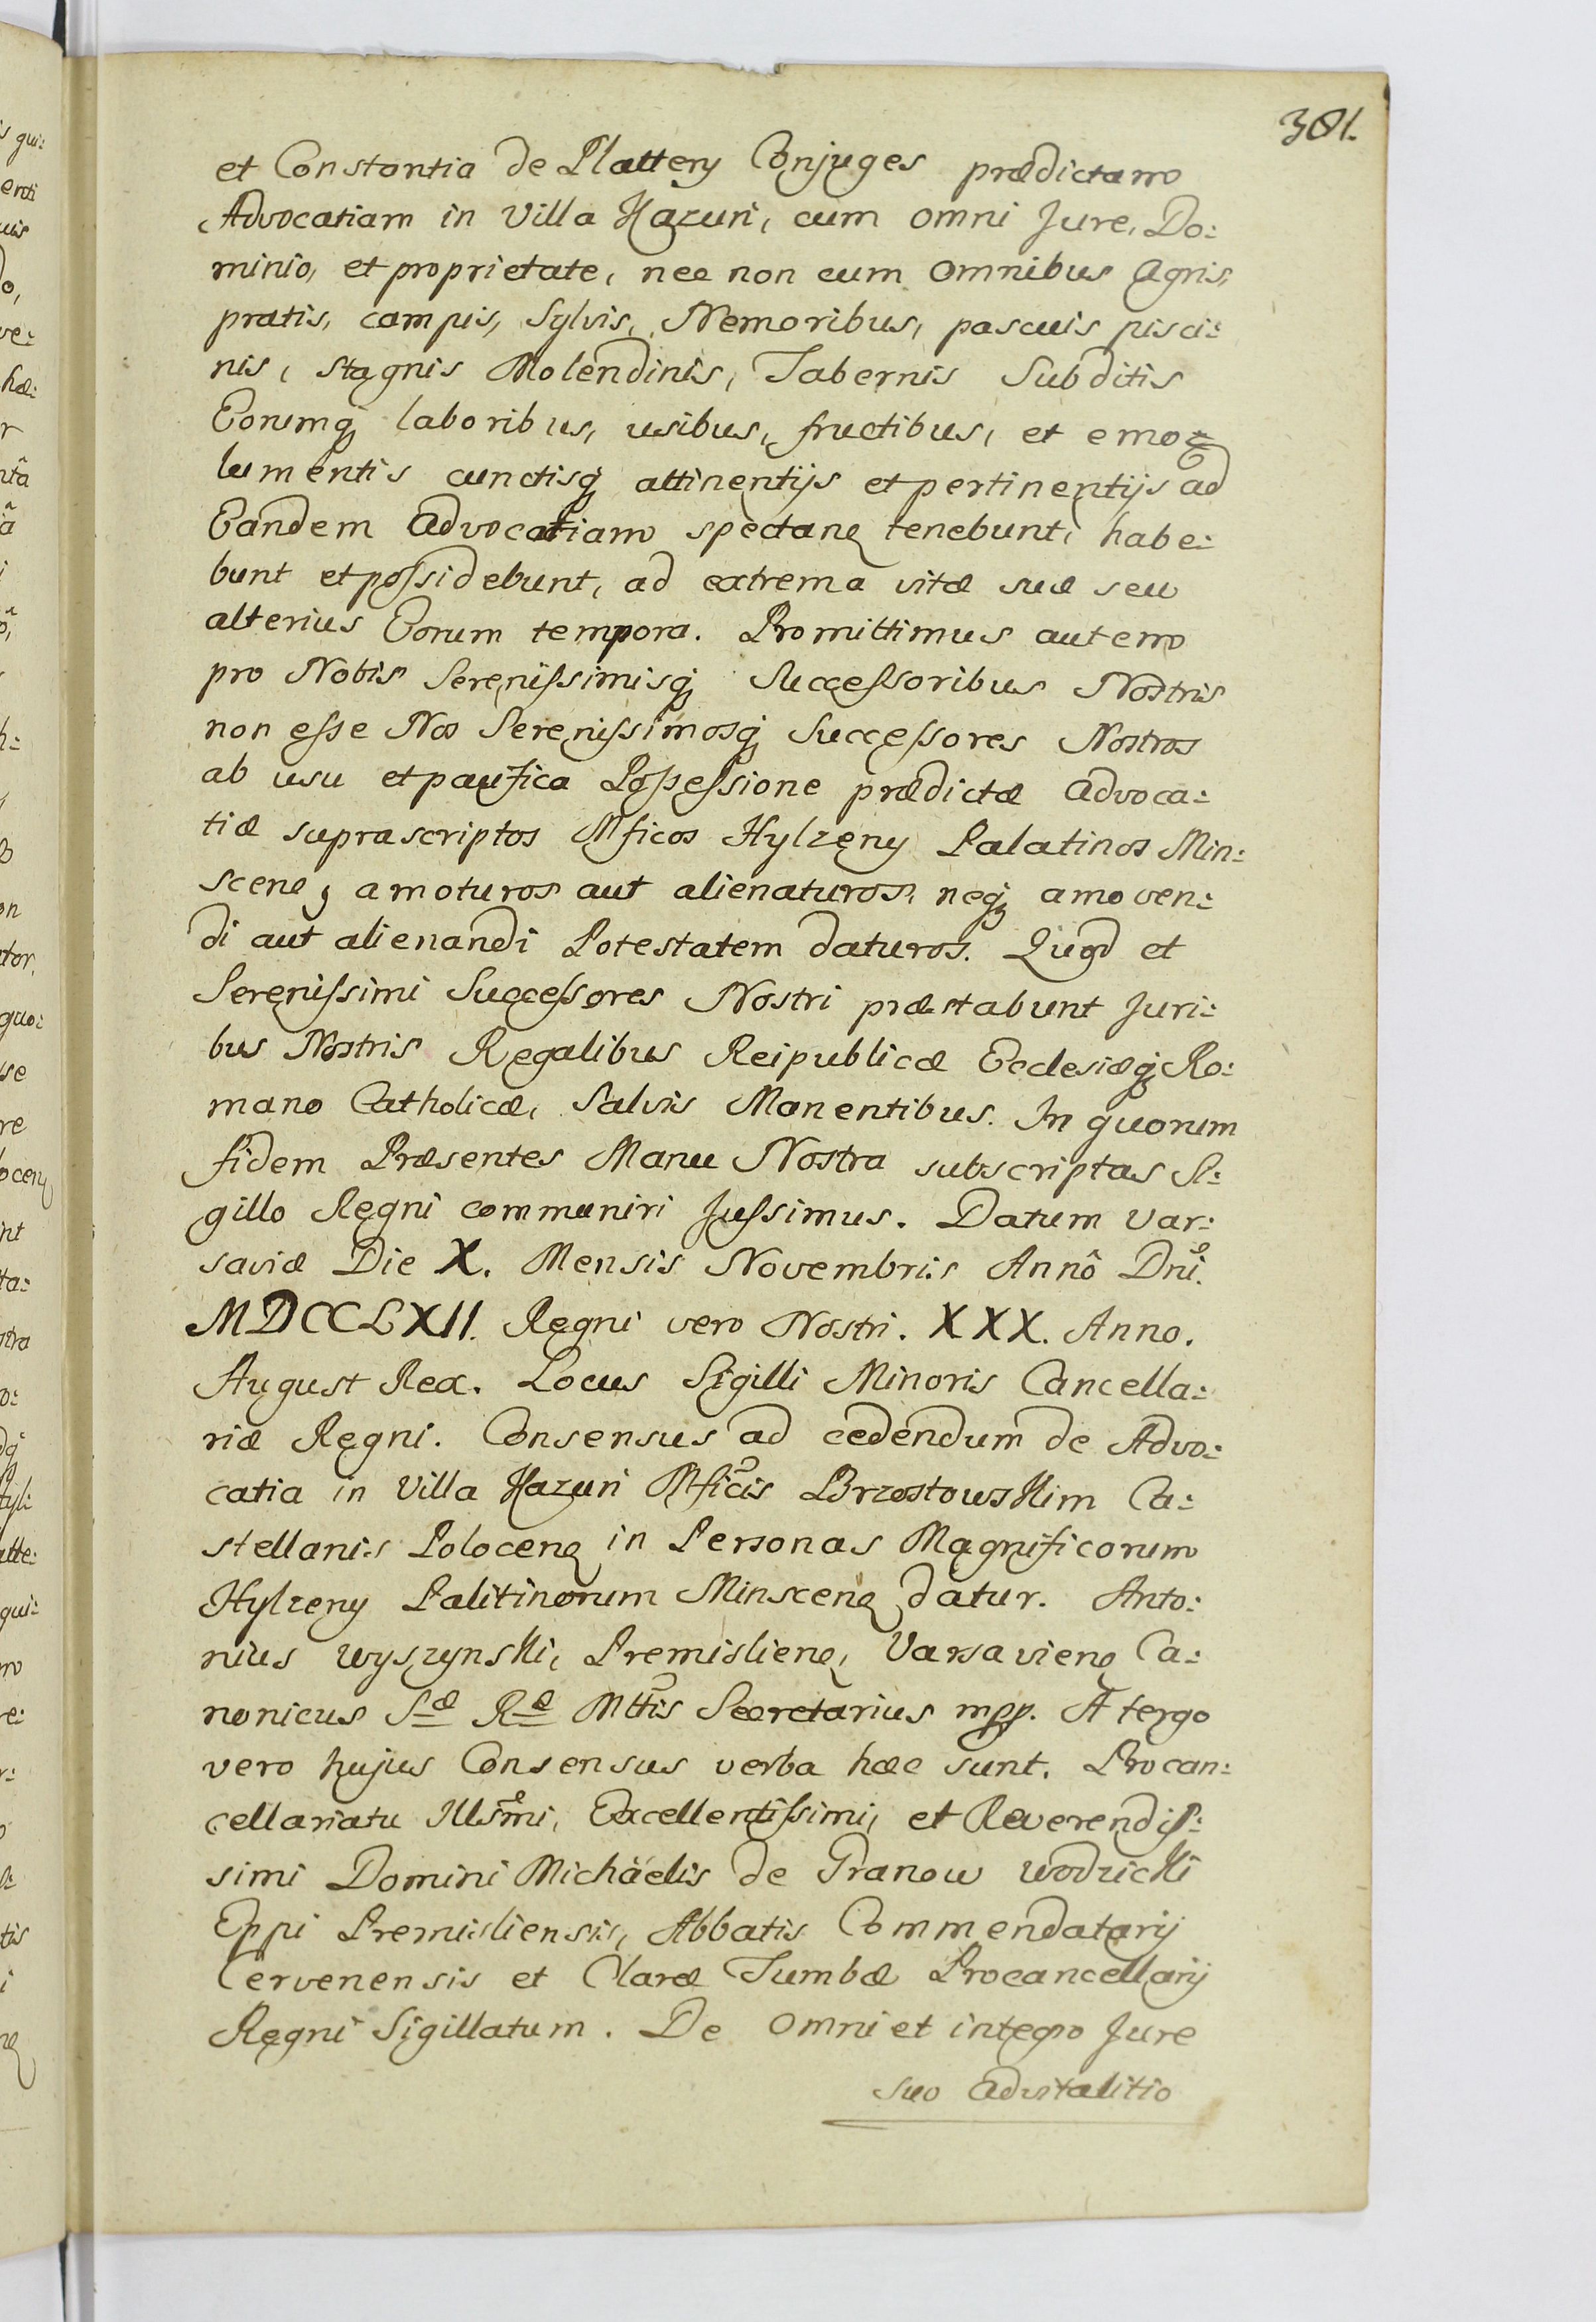 381.
et Constantia de Plattery Conjuges prædictam
Advocatiam in Villa Hazuri, cum omni Jure, Do:
minio, et proprietate, nec non cum omnibus agris,
pratis, campis, Sylvis, Nemoribus, pascuis pisci:
nis, stagnis Molendinis, Tabernis Subditis
Eorumq laboribus, usibus, fructibus, et emo:
lumentis cunctisq attinentijs et pertinentijs ad
Eandem advocatiam spectanę tenebunt, habe:
bunt et possidebunt, ad extrema vitæ suæ seu
alterius Eorum tempora. Promittimus autem
pro Nobis Serenissimisq Successoribus Nostris
non esse Nos Serenissimosq Successores Nostros
ab usu et paufica Possessione prædictæ advoca:
tiæ suprascriptos Mficos Hylzeny Palatinos Min:
scenę, amoturos aut alienaturos, neq amoven:
di aut alienandi Potestatem daturos. Quod et
Serenissimi Successores Nostri præstabunt Juri:
bus Nostris Regalibus Reipublicæ Ecclesiæq Ro:
mano Catholicæ, Salvis Manentibus. In quorum
fidem Præsentes Manu Nostra subscriptas Si:
gillo Regni communiri Jussimus. Datum Var:
saviæ Die X. Mensis Novembris Annô Dni.
MDCCLXII. Regni vero Nostri. XXX. Anno.
August Rex. Locus Sigilli Minoris Cancella:
riæ Regni. Consensus ad cedendum de Advo:
catia in Villa Hazuri Mficis Brzostowskim Ca:
stellanis Polocenę in Personas Magnificorum
Hylzeny Palitinorum Minscenę datur. Anto:
nius Wyszynski, Premislienę, Varsavienę Ca:
nonicus Sæ Ræ Mttis Secretarius mpp. A tergo
vero hujus Consensus verba hæc sunt. Procan:
cellariatu Illsmi, Excellentissimi, et Reverendis:
simi Domini Michäelis de Granow Wodzicki
Eppi Premisliensis, Abbatis Commendatarij
Cervenensis et Claræ Tumbæ Procancellarij
Regni Sigillatum. De omni et integro Jure
suo advitalitio